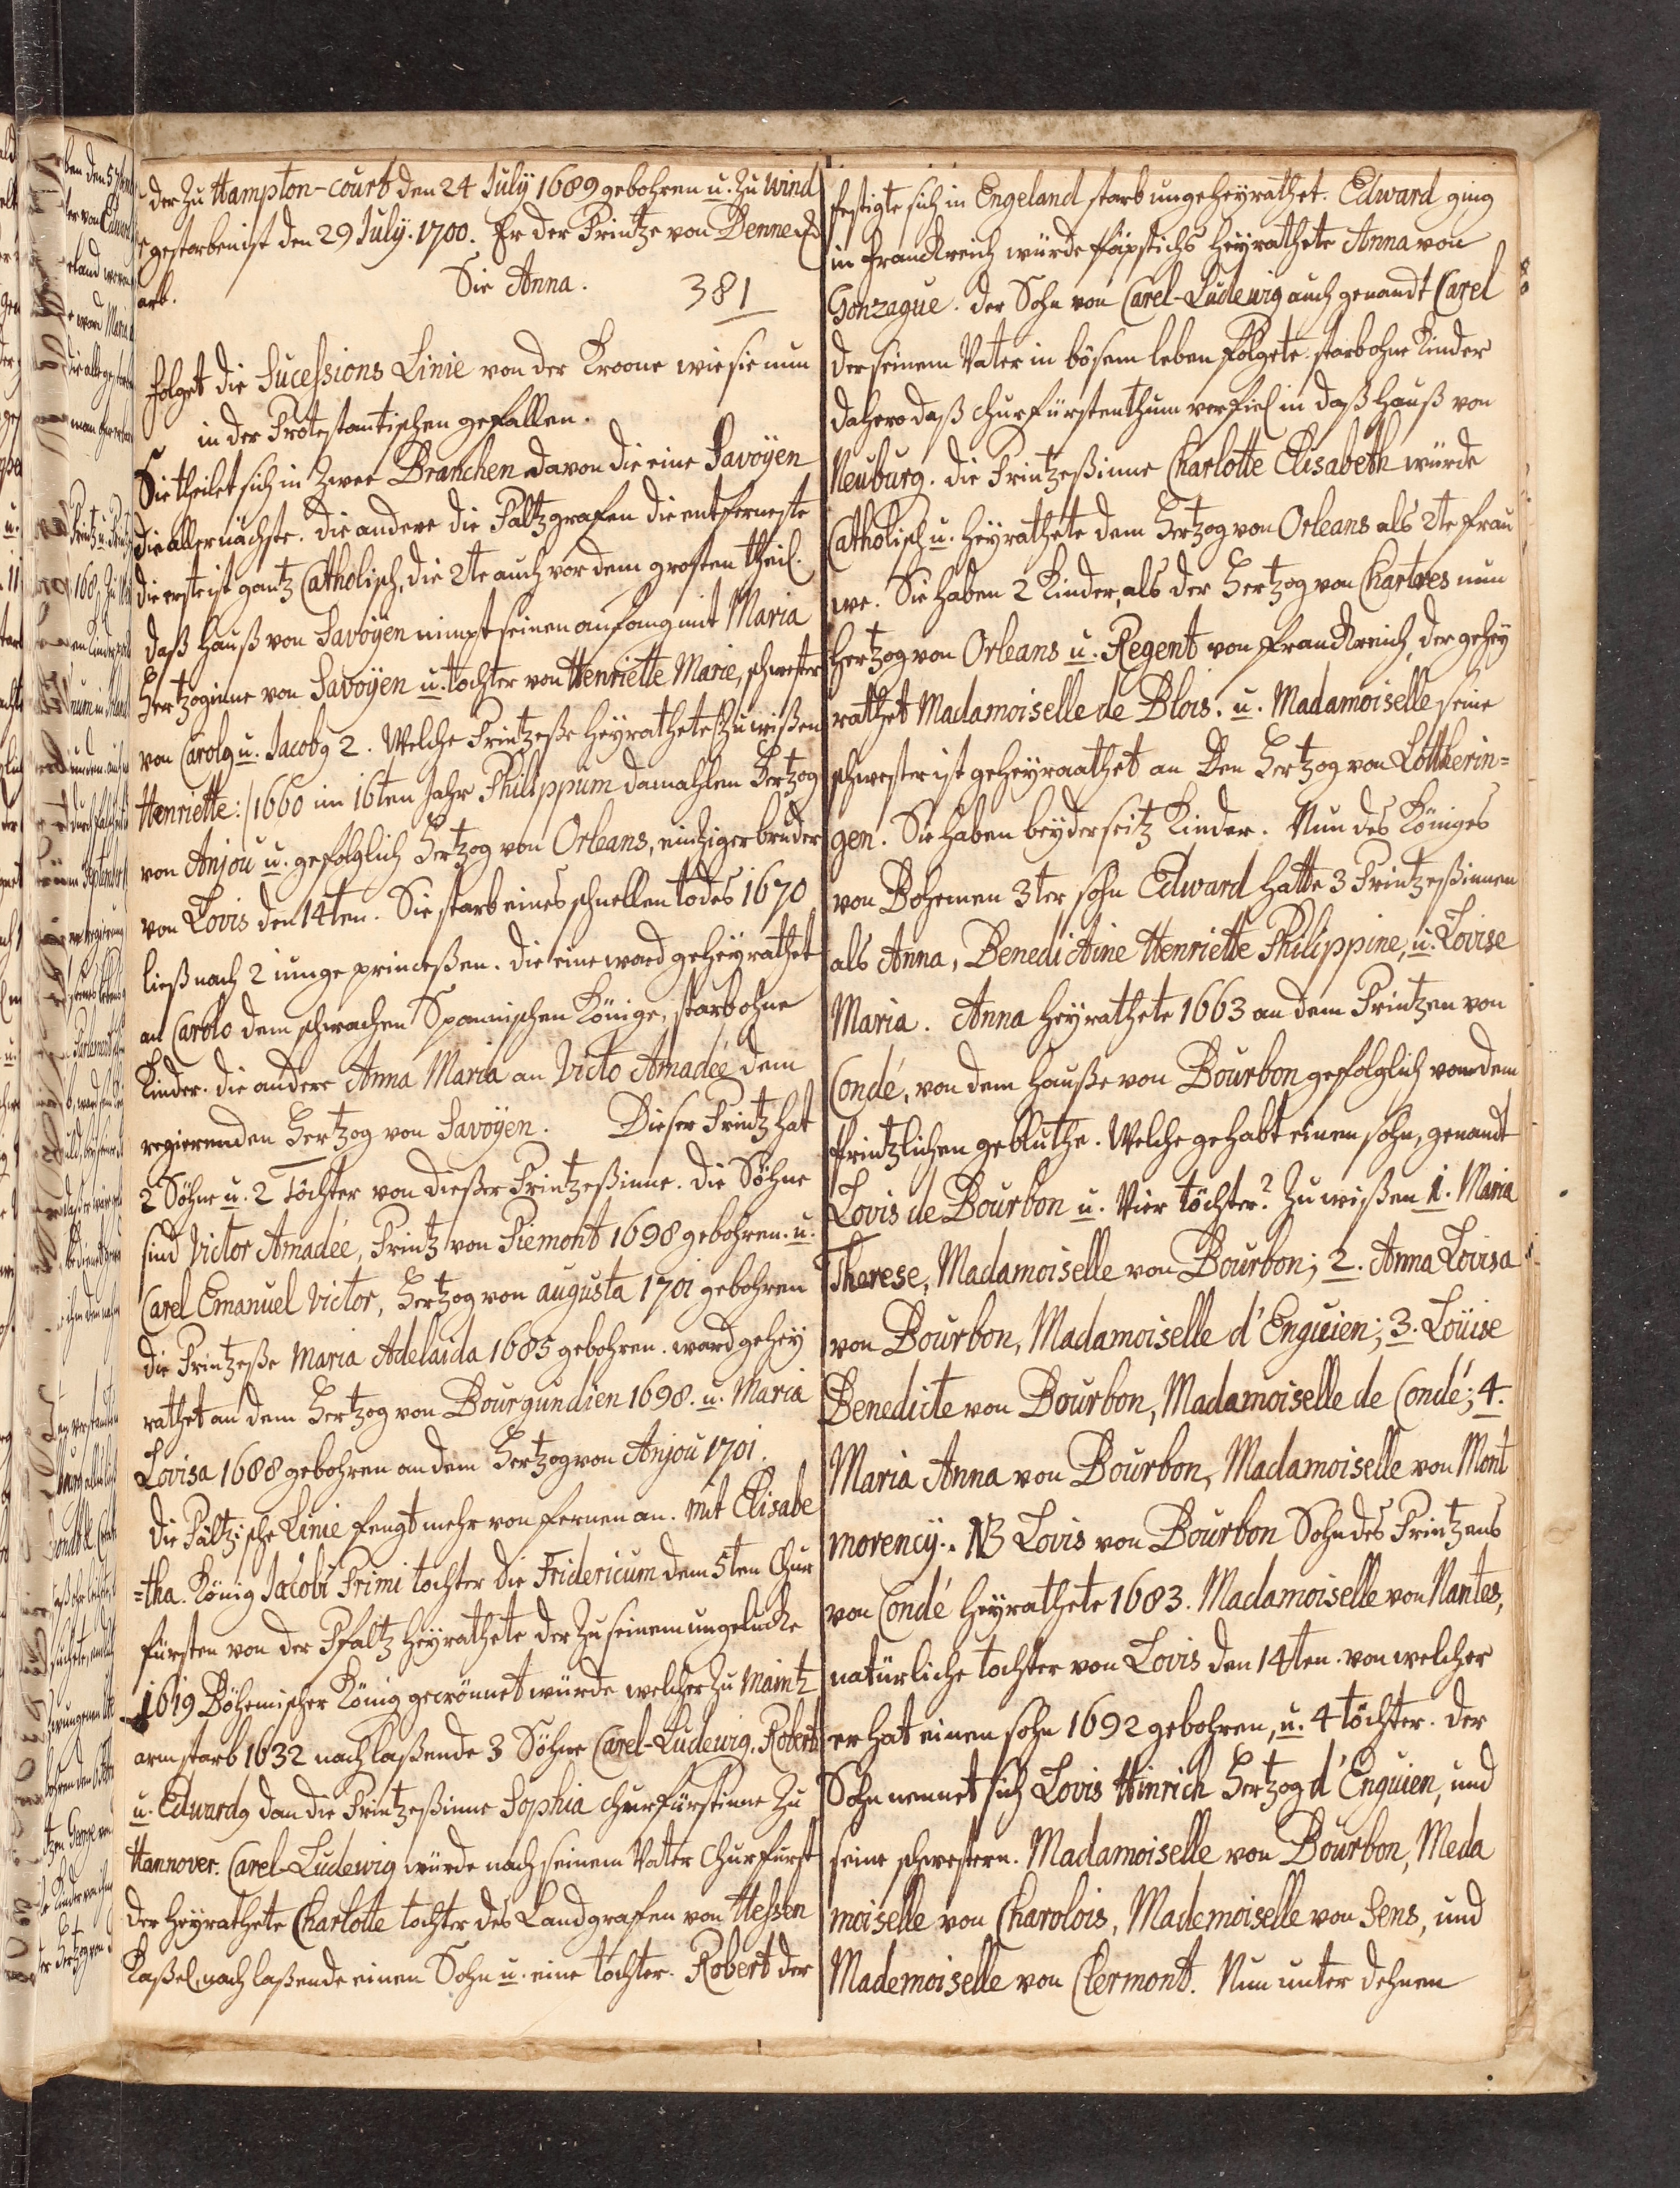 der zu Hampton-court den 24 July 1689 gebohren u. zu Wind
gestorben ist den 29 July. 1700. Er der Printze von Dennem
arb. Sie Anna. 381
folget die Sucessions Linie von der Kroone wie sie nun
in der Protestantischen gefallen.
Sie theilet sich in zwee Branchen davon die eine Savoyen
die aller nächste. die andere die Paltzgrafen die entferneste
die erste ist gantz Catholisch, die 2te auch vor dem grosten theil.
daß Hauß von Savoyen nimpt seinen anfang mit Maria
Hertzoginne von Savoyen u. tochter von Henriette Marie, schwester
von Carolg u. Jacobg 2. Welche Printzeße heyrathete /:zu wißen
Henriette:/ 1660 im 16ten Jahr Philippum damahlen Hertzog
von Anjou u. gefolglich Hertzog von Orleans, eintziger bruder
von Lovis den 14ten. Sie starb eines schnellen todes 1670
ließ nach 2 iunge princeßen. die eine ward geheyrathet
an Carolo dem schwachen Spannischen Könige, starb ohne
Kinder. die andere Anna Maria an Victo Amadéé dem
regierenden Hertzog von Savoyen. Dieser Printz hat
2 Söhne u. 2 Töchter von dießer Printzeßinne. die Söhne
sind Victor Amadée, Printz von Piemont 1698 gebohren. u.
Carel Emanuel Victor, Hertzog von augusta 1701 gebohren
die Printzeße Maria Adelaida 1685 gebohren. ward gehey
rathet an dem Hertzog von Bourgundien 1698. u. Maria
Lovisa 1688 gebohren an dem Hertzog von Anjou 1701.
Die Pältzische Linie fengt mehr von fernen an. mit Elisabe
=tha. König Jacobi Primi tochter die Fridericum dem 5ten Chur
fürsten von der Pfaltz heyrathete der zu seinem ungelucke
1619 Böhemischer König gecrönnet würde welcher zu Maintz
arm starb 1632 nach laßende 3 Söhne Carel-Ludewig. Robert
u. Edwardg dan die Printzeßinne Sophia Churfürstinne zu
Hannover. Carel-Ludewig würde nach seinem Vater Churfürst
der heyrathete Charlotte tochter des Landgrafen von Hessen
Kaßel, nach laßende einen Sohn u. eine tochter. Robert der
festigte sich in Engeland starb ungeheyrathet. Edward ging
in Franckreich würde Päpstichs heyrathete Anna von
Gonzague. der Sohn von Carel-Ludewig auch genandt Carel
der seinem Vater in bösem leben folgete starb ohne Kinder
dahero daß Churfürstenthum verfiel in daß Hauß von
Neuburg. die Printzeßinne Charlotte Elisabeth würde
Catholisch u. heyrathete dem Hertzog von Orleans als 2te frau
we. Sie haben 2 Kinder, als der Hertzog von Chartres nun
Hertzog von Orleans u. Regent von Franckreich, der gehey
rathet Madamoiselle de Blois. u. Madamoiselle seine
schwester ist geheyraathet an Den Hertzog von Lotherin=
gen. Sie haben beyderseitz Kinder. Nun des Königes
von Bohemen 3ter sohn Edward hatte 3 Printzeßinnen
als Anna, Benedictine Henriette Philippine, u. Lovise
Maria. Anna heyrathete 1663 an dem Printzen von
Condé, von dem Hauße von Bourbon gefolglich von dem
Printzlichen gebluthe. Welche gehabt einen sohn, genandt
Lovis de Bourbon u. Vier töchter? Zu wißen 1. Maria
Therese, Madamoiselle von Bourbon; 2. Anna Lovisa
von Bourbon, Madamoiselle d'Enguien; 3. Loüise
Benedicte von Bourbon, Madamoiselle de Condé; 4.
Maria Anna von Bourbon, Madamoiselle von Mont
morency. NB Lovis von Bourbon Sohn des Printzens
von Condé heyrathete 1683. Madamoiselle von Nantes,
natürliche tochter von Lovis den 14ten. von welcher
er hat einen sohn 1692 gebohren, u. 4 töchter. der
Sohn nennet sich Lovis Hinrich Hertzog d'Enguien, und
seine schwestern. Madamoiselle von Bourbon, Meda
moiselle von Charolois, Mademoiselle von Sens, und
Mademoiselle von Clermont. Nun unter dehnen